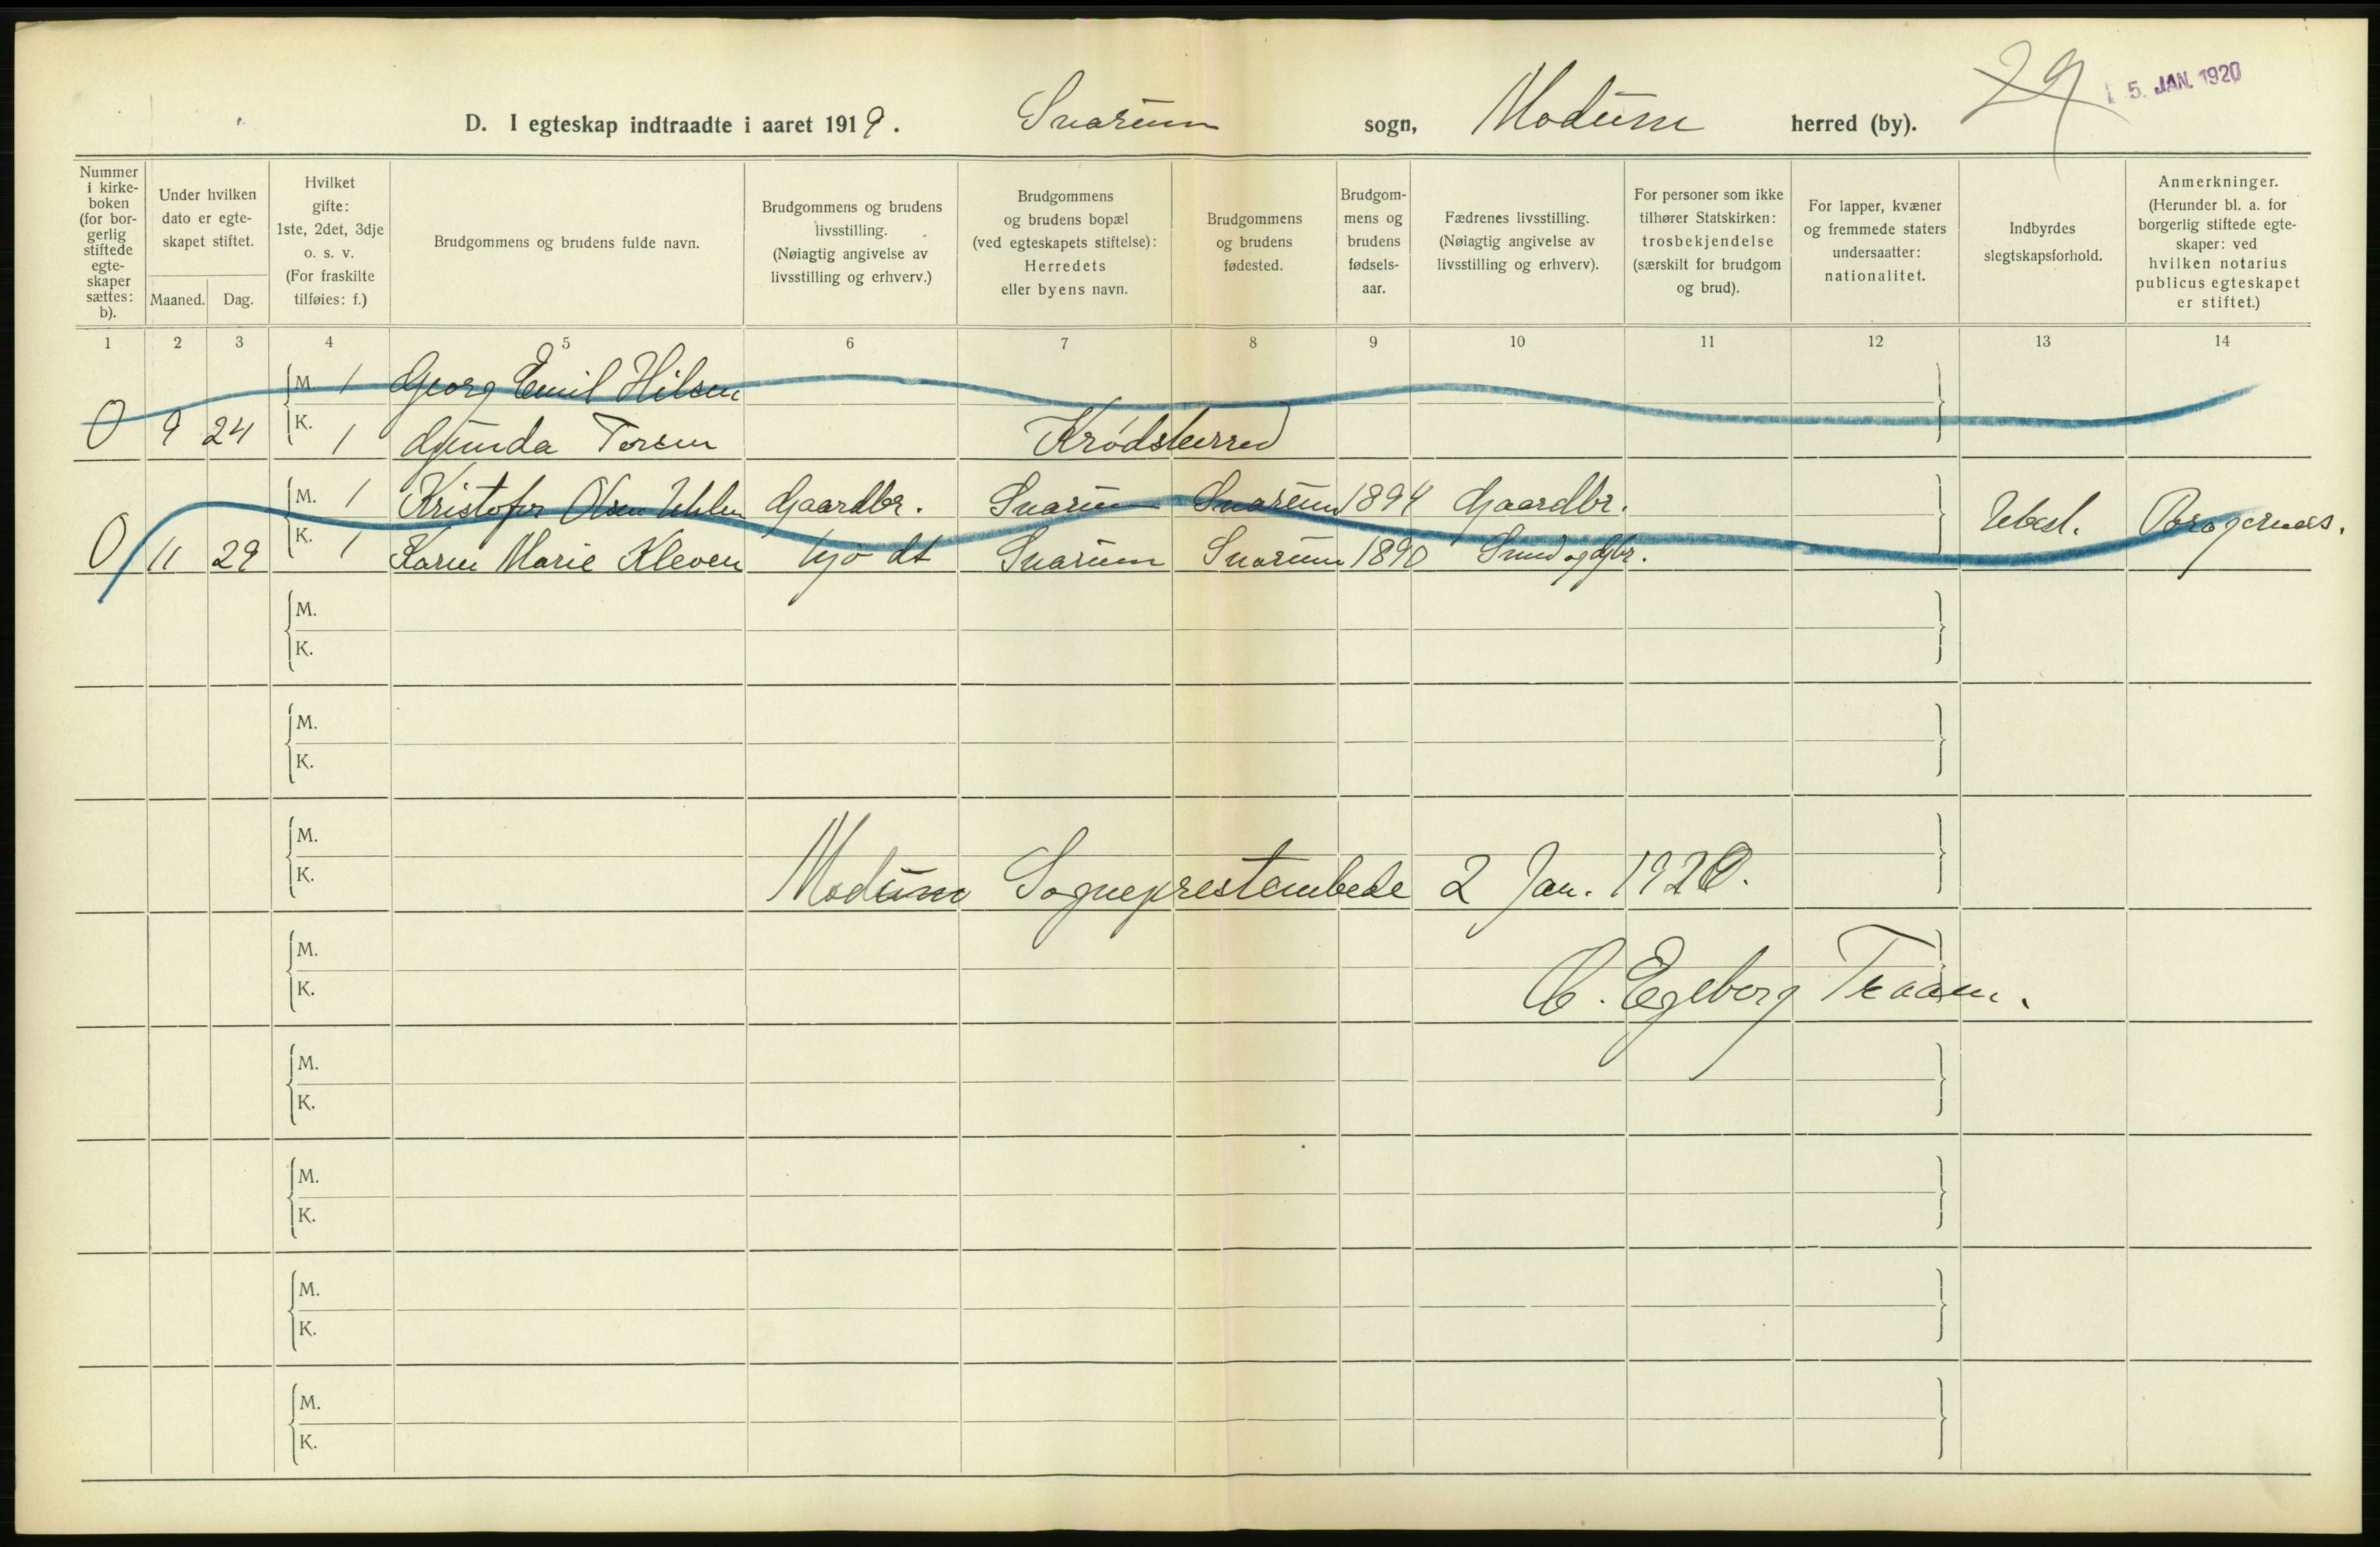 D. I egteskap indtraadte i aaret 1919. Snarum sogn, Modum herred (by).
29
5. JAN. 1920
Nummer i kirke-boken (for bor-gerlig stiftede egte-skaper sættes: b).
Under hvilken dato er egte-skapet stiftet.
Maaned. Dag.
Hvilket gifte: 1ste, 2det, 3dje o. s. v. (For fraskilte tilføies: f.)
Brudgommens og brudens fulde navn.
Brudgommens og brudens livsstilling. (Nøiagtig angivelse av livsstilling og erhverv.)
Brudgommens og brudens bopæl (ved egteskapets stiftelse): Herredets eller byens navn.
Brudgommens og brudens fødested.
Brudgom-mens og brudens fødsels-aar.
Fædrenes livsstilling. (Nøiagtig angivelse av livsstilling og erhverv).
For personer som ikke tilhører Statskirken: trosbekjendelse (særskilt for brudgom og brud).
For lapper, kvæner og fremmede staters undersaatter: nationalitet.
Indbyrdes slegtskapsforhold.
Anmerkninger. (Herunder bl. a. for borgerlig stiftede egte-skaper: ved hvilken notarius publicus egteskapet er stiftet.)
1 2 3 4 5 6 7 8 9 10 11 12 13 14
M. 1 Georg Emil Hilsen
0 9 24 K. 1 Gunda Torsen Krødsherred
M. 1 Kristofer Olsen Gaardbr. Snarum Snarum 1894 Gaardbr. Ubesl. Bragernæs.
0 11 29 K. 1 Karen Marie Kleven Snarum Snarum 1890 Smed og Gbr.
M.
K.
M.
K.
M.
K.
Modum Sogneprestembede 2 Jan. 1920.
M.
K.
C. Egeberg
M.
K.
M.
K.
M.
K.
M.
K.